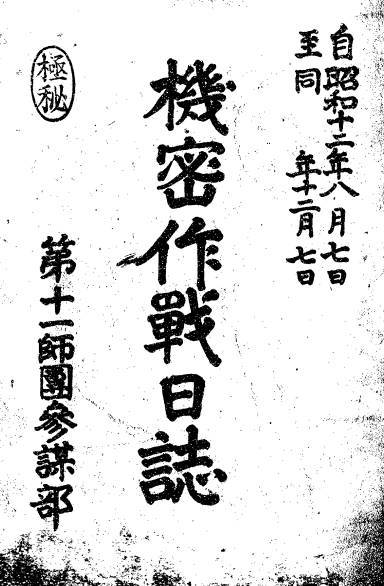 自昭和十二年八月七日
至同 年十二月七日
機密作戰日誌
極秘
第十一師團參謀部